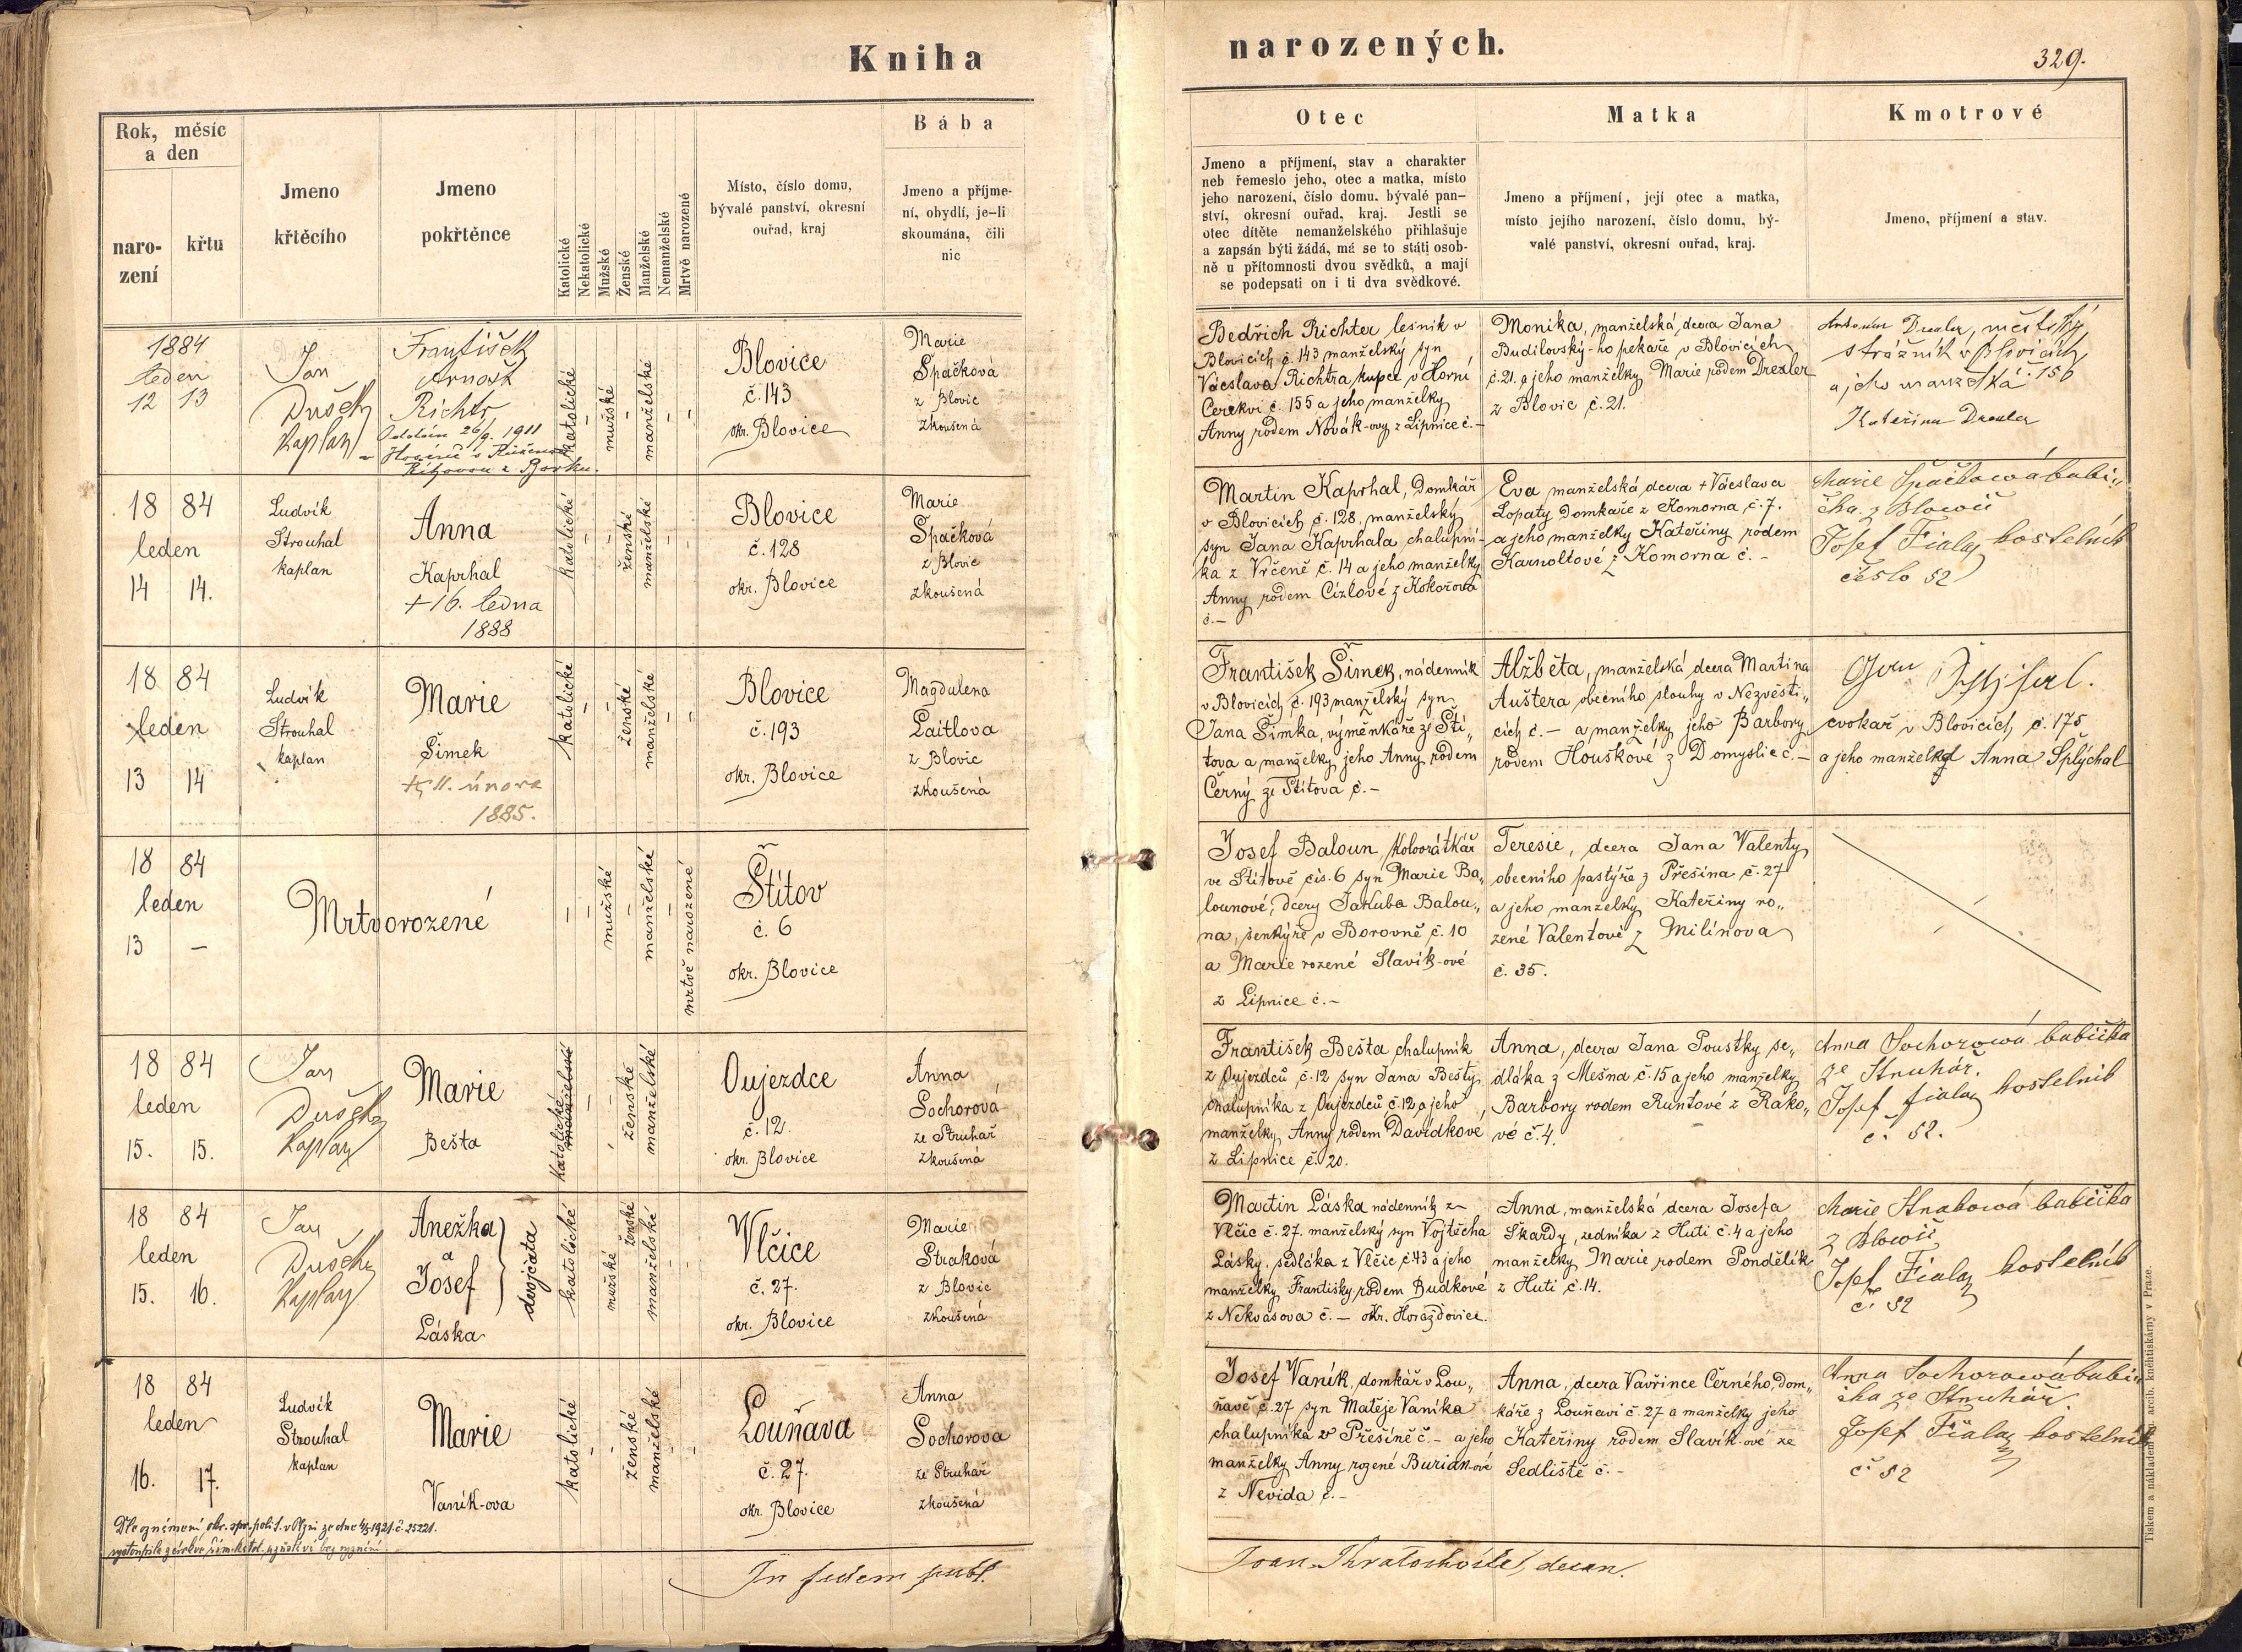 Kniha
narozených.
329.
Rok, měsíc
a den
naro-
zení
křtu
Jmeno
křtěcího
Jmeno
pokřtěnce
Katolické
Nekatolické
Mužské
Ženské
Manželské
Nemanželské
Mrtvě narozené
Místo, číslo domu,
bývalé panství, okresní
ouřad, kraj
Bába
Jmeno a příjme-
ní, obydlí, je-li
skoumána, čili
nic
Otec
Jmeno a příjmení, stav a charakter
neb řemeslo jeho, otec a matka, místo
jeho narození, číslo domu, bývalé pan-
ství, okresní ouřad, kraj. Jestli se
otec dítěte nemanželského přihlašuje
a zapsán býti žádá, má se to státi osob-
ně u přítomnosti dvou svědků, a mají
se podepsati on i ti dva svědkové.
Matka
Jmeno a příjmení, její otec a matka,
místo jejího narození, číslo domu, bý-
valé panství, okresní ouřad, kraj.
Kmotrové
Jmeno, příjmení a stav.
1884
leden
12 13
Jan
Dušek
Kaplan
František
Arnošt
Richtr
Oddán 26/9. 1911
katolické
mužské
manželské
Blovice
č. 143
okr. Blovice
Marie
Špačková
z Blovic
zkoušená
Bedřich Richter lesník v
Blovicích č. 143 manželský syn
Václava Richtra kupce v Horní
Cerekvi č. 155 a jeho manželky
Anny rodem Novák-ovy z Lipnice č. –
Monika, manželská dcera Jana
Budilovský-ho pekaře v Blovicích
č. 21. a jeho manželky Marie rodem Drexler
z Blovic č. 21.
Antonín Drexler, městský
strážník v Blovicích
a jeho manželka 156
Kateřina Drexler
18 84
leden
14 14.
Ludvík
Strouhal
kaplan
Anna
Kaprhal
+ 16. ledna
1888
katolické
ženské
manželské
Blovice
č. 128
okr. Blovice
Marie
Špačková
z Blovic
zkoušená
Martin Kaprhal, Domkář
v Blovicích č. 128, manželský
syn Jana Kaprhala chalupní-
ka z Vrčeně č. 14 a jeho manželky
Anny rodem Cízlové z Kokořova
č. –
Eva manželská dcera + Václava
Lopaty Domkaře z Komorna č. 7.
a jeho manželky Kateřiny rodem
Karnoltové z Komorna č. –
Marie Špačkowá babi„
čka z Blowic
Josef Fiala kostelník
číslo 52
18 84
leden
13 14
Ludvík
Strouhal
kaplan
Marie
Šimek
+ 11. února
1885.
katolické
ženské
manželské
Blovice
č. 193
okr. Blovice
Magdalena
Laitlova
z Blovic
zkoušená
František Šimek, nádenník
v Blovicích č. 193 manželský syn
Jana Šimka, výměnkáře ze Šti„
tova a manželky jeho Anny rodem
Černý ze Štítova č. –
Alžběta, manželská dcera Martina
Auštera obecního slouhy v Nezvěsti„
cích č. – a manželky jeho Barbory
rodem Houškové z Domyslic č. –
cvokař v Blovicích č. 175
a jeho manželka Anna Šplýchal
18 84
leden
13 –
Mrtvorozené
mužské
manželské
mrtvě narozené
Štítov
č. 6
okr. Blovice
Josef Baloun, kolovrátkář
ve Štítově čís. 6 syn Marie Ba„
lounové, dcery Jakuba Balou„
na, šenkýře v Borovně č. 10
a Marie rozené Slavík-ové
z Lipnice č. –
Teresie, dcera Jana Valenty
obecního pastýře z Přešina č. 27
a jeho manželky Kateřiny ro„
zené Valentové z Milínova
č. 35.
18 84
leden
15. 15.
Jan
Dušek
Kaplan
Marie
Bešta
katolické
ženské
manželské
Oujezdce
č. 12
okr. Blovice
Anna
Sochorová
ze Struhař
zkoušená
František Bešta chalupník
z Oujezdců č. 12 syn Jana Bešty
chalupníka z Oujezdců č. 12 a jeho
manželky Anny rodem Davídkové
z Lipnice č. 20.
Anna, dcera Jana Poustky se„
dláka z Mešna č. 15 a jeho manželky
Barbory rodem Runtové z Rako„
vé č. 4.
Anna Sochorowá babička
ze Struhář.
Josef Fiala kostelník
č. 52.
18 84
leden
15. 16.
Jan
Dušek
Kaplan
Anežka
a
Josef
Láska
dvojčata
katolické
mužské
ženské
manželské
Vlčice
č. 27.
okr. Blovice
Marie
Straková
z Blovic
zkoušená
Martin Láska nádenník z
Vlčic č. 27. manželský syn Vojtěcha
Lásky, sedláka z Vlčic č. 43 a jeho
manželky Františky, rodem Budkové
z Nekvasova č. – okr. Horažďovice.
Anna, manželská dcera Josefa
Škardy, zedníka z Huti č. 4 a jeho
manželky Marie rodem Pondělík
z Huti č. 14.
Marie Strakowá babička
z Blowic
Josef Fiala kostelník
č. 52
18 84
leden
16. 17.
Ludvík
Strouhal
kaplan
Marie
Vaník-ova
katolické
ženské
manželské
Louňava
č. 27.
okr. Blovice
Anna
Sochorova
ze Struhař
zkoušená
Josef Vaník, domkář v Lou„
ňavě č. 27 syn Matěje Vaníka
chalupníka v Přešíně č. – a jeho
manželky Anny rozené Burian-ové
z Nevida č. –
Anna, dcera Vavřince Černého, dom„
káře z Louňavi č. 27 a manželky jeho
Kateřiny rodem Slavík-ové ze
Sedliště č. –
Anna Sochorowá babi„
čka ze Struhář.
Josef Fiala kostelník
č. 52
Dle oznámení okr. spr. polit. v Plzni ze dne 4/5 1921 č. 25221.
vystoupila z církve řím. katol.
In fidem publ.
Joan. Kratochvíle, decan.
Tiskem a nákladem kn. arcib. knihtiskárny v Praze.